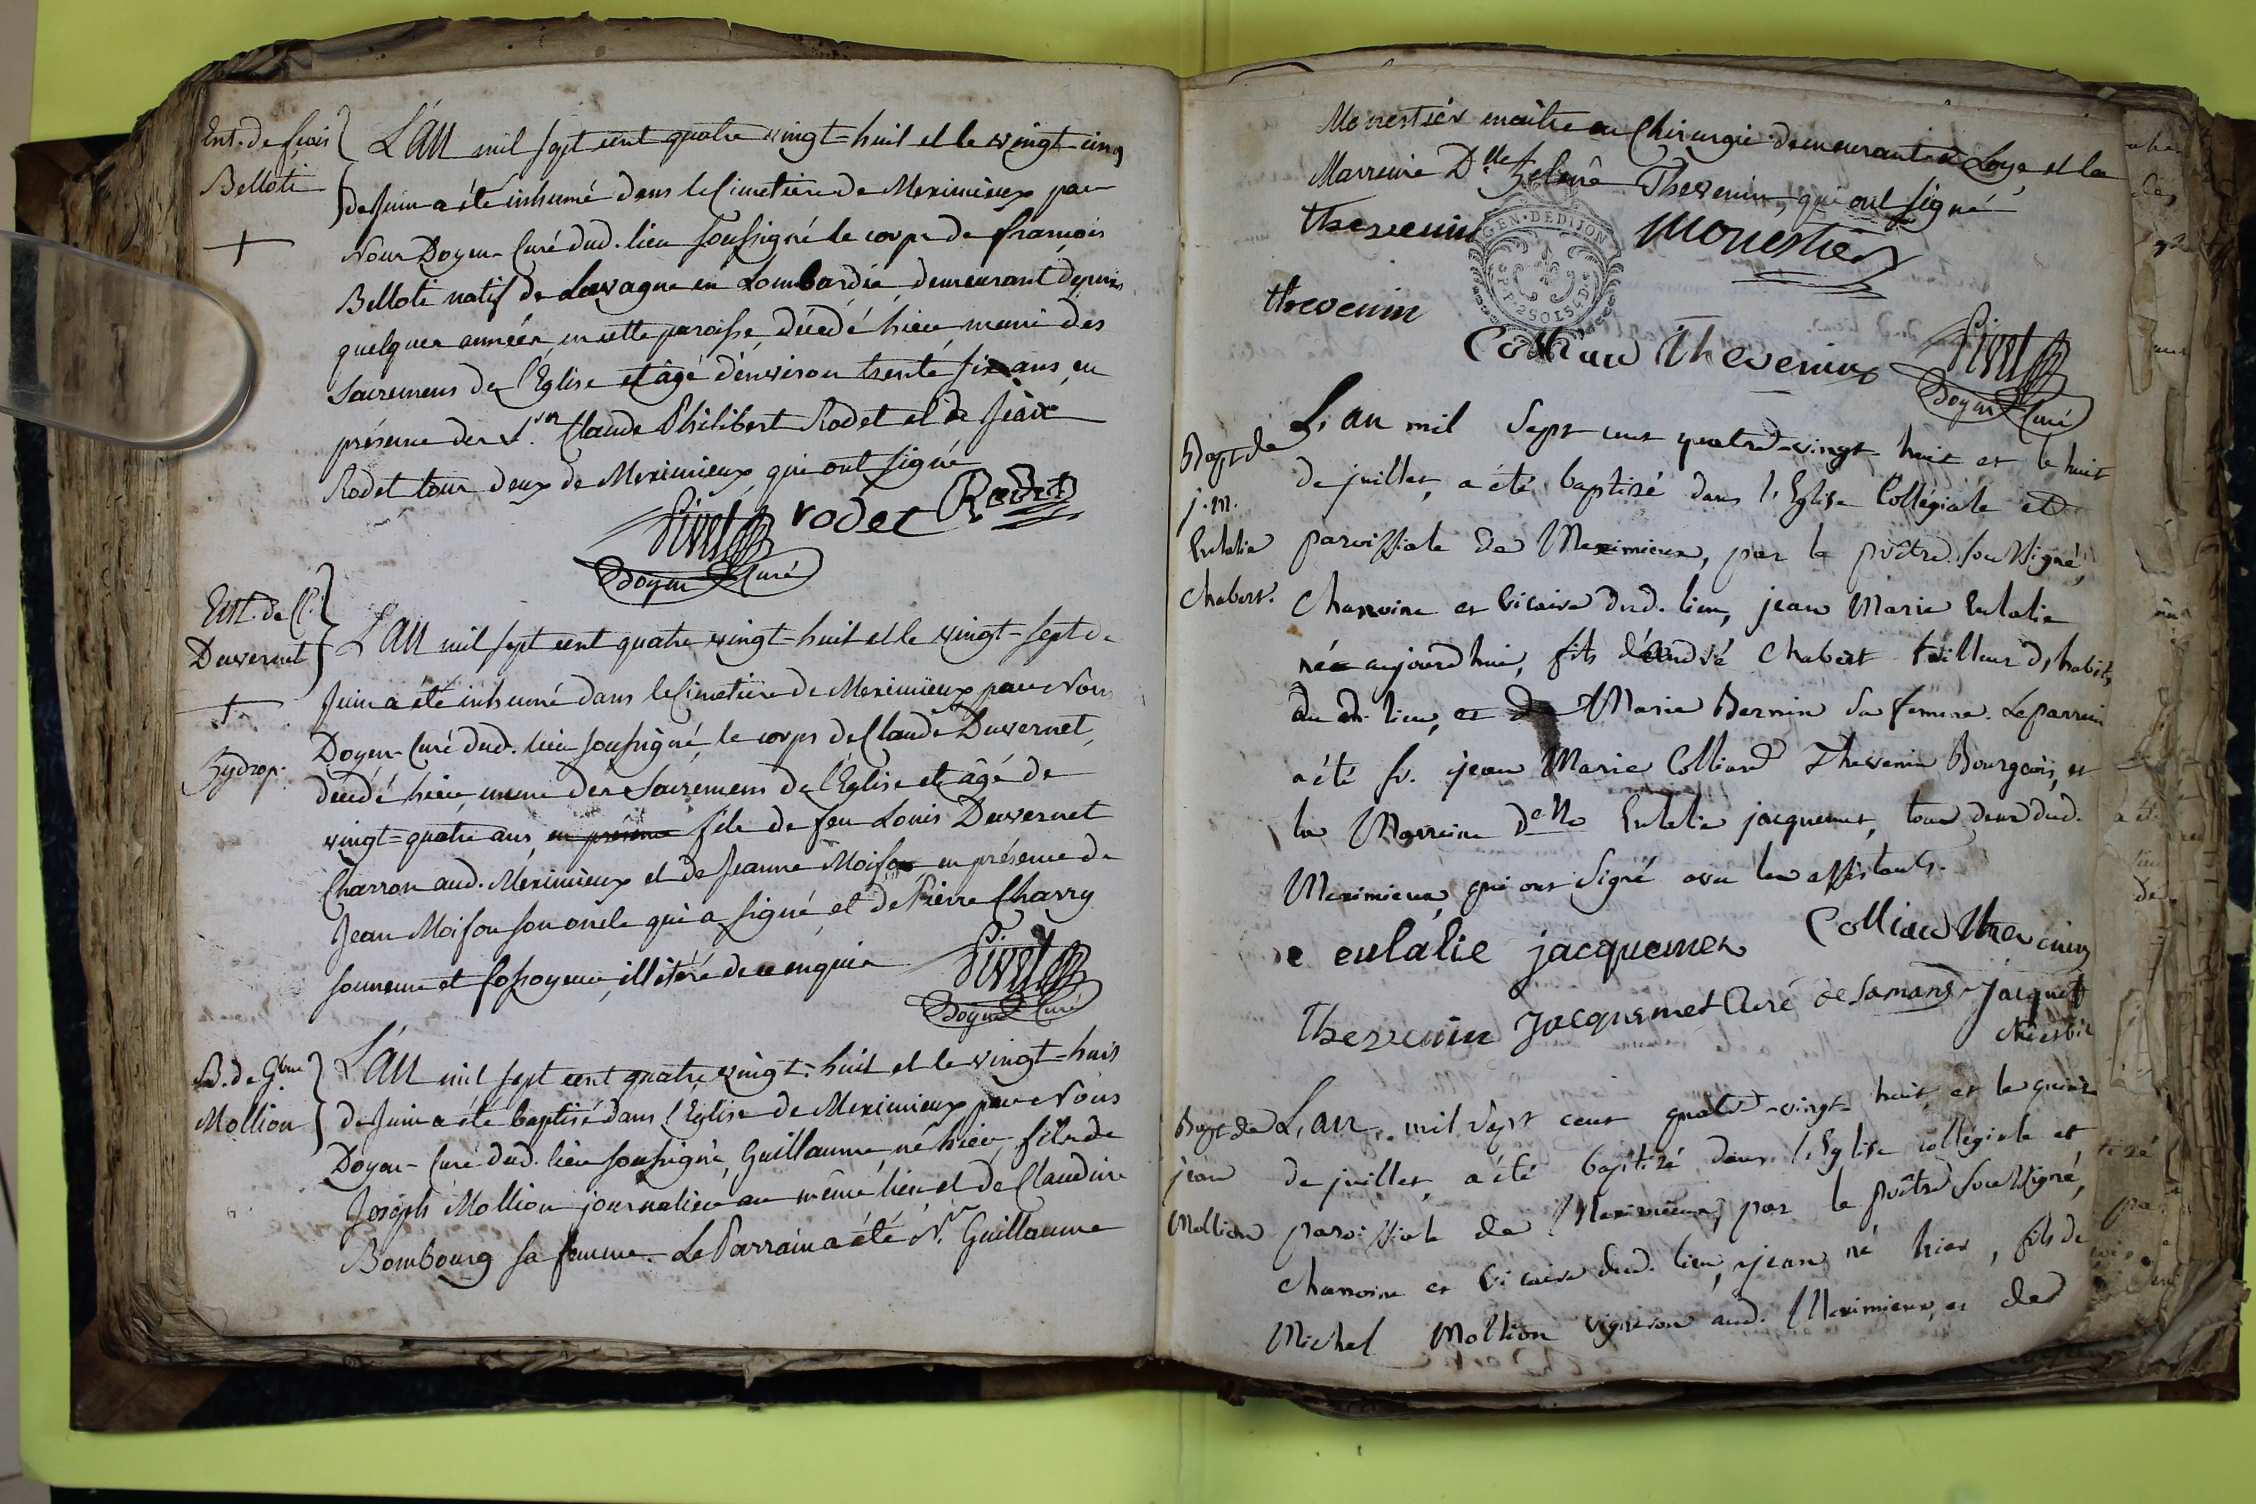 Ent. de frois
Belloti
L'an mil sept cent quatre vingt=huit et le vingt cinq
de Juin a été inhumé dans le Cimetiere de Meximieux par
Nous Doyen-Curé dud. lieu soussigné le corps de françois
Belloti natif de Lavagne en Lombardie, demeurant depuis
quelques années en cette paroisse, décédé hier muni des
Sacremens de l'Eglise et âgé d'environ trente six ans, en
présence des Srs Claude Philibert Rodet et de Jean
Rodet tous deux de Meximieux qui ont signé
Pivet rodet Rodet
Doyen Curé
Ent. de Cl.
Duvernet
Hydrop.
L'an mil sept cent quatre vingt=huit et le vingt=sept de
Juin a été inhumé dans le Cimetiere de Meximieux par Nous
Doyen-Curé dud. lieu soussigné, le corps de Claude Duvernet,
décédé hier, muni des Sacremens de l'Eglise et âgé de
vingt=quatre ans, en présence fils de feu Louis Duvernet
Charron aud. Meximieux et de Jeanne Moison en présence de
Jean Moison son oncle qui a signé et de Pierre Charry
sonneur et fossoyeur, illitéré de ce enquis
Pivet
Doyen Curé
B. de Gme
Mollion
L'an mil sept cent quatre vingt=huit et le vingt=huit
de Juin a été baptisé dans l'Eglise de Meximieux par Nous
Doyen-Curé dud. lieu soussigné, Guillaume, né hier, fils de
Joseph Mollion journalier au même lieu et de Claudine
Bombourg sa femme. Le Parrain a été Sr. Guillaume
Monestier maître en Chirurgie demeurant à Loye et la
Marreine Dlle helene Thevenin, qui ont signé
thevenin Monestier
GEN. DE DIJON
2 SOLS
thevenin
Colliau Thevenin Pivet
Doyen Curé
Bapt de
j. m.
Eulalie
Chabert.
L'an mil sept cent quatre-vingt-huit et le huit
de juillet, a été baptisé dans l'Eglise Collégiale et
paroissiale de Meximieux, par le prêtre soussigné,
Chanoine et vicaire dud. lieu, jean Marie Eulalie
née aujourd'hui, fils d'André Chabert tailleur d'habits
du d. lieu, et de Marie Bernin sa femme. Le parrein
a été sr. jean Marie Colliard Thevenin Bourgeois, et
la Marreine Delle Eulalie jacquemet, tous deux dud.
Meximieux, qui ont signé avec les assistants.
eulalie jacquemet Colliau Thevenin
Thevenin Jacquemet Curé de Samans Jacquet
Bapt de
jean
Mollion
L'an mil sept cent quatre-vingt huit, et le quinze
de juillet, a été baptizé dans l'Eglise collégiale et
paroissiale de Meximieux, par le prêtre soussigné,
chanoine et vicaire dud. lieu, jean né hier, fils de
Michel Mollion vigneron aud. Meximieux, et de